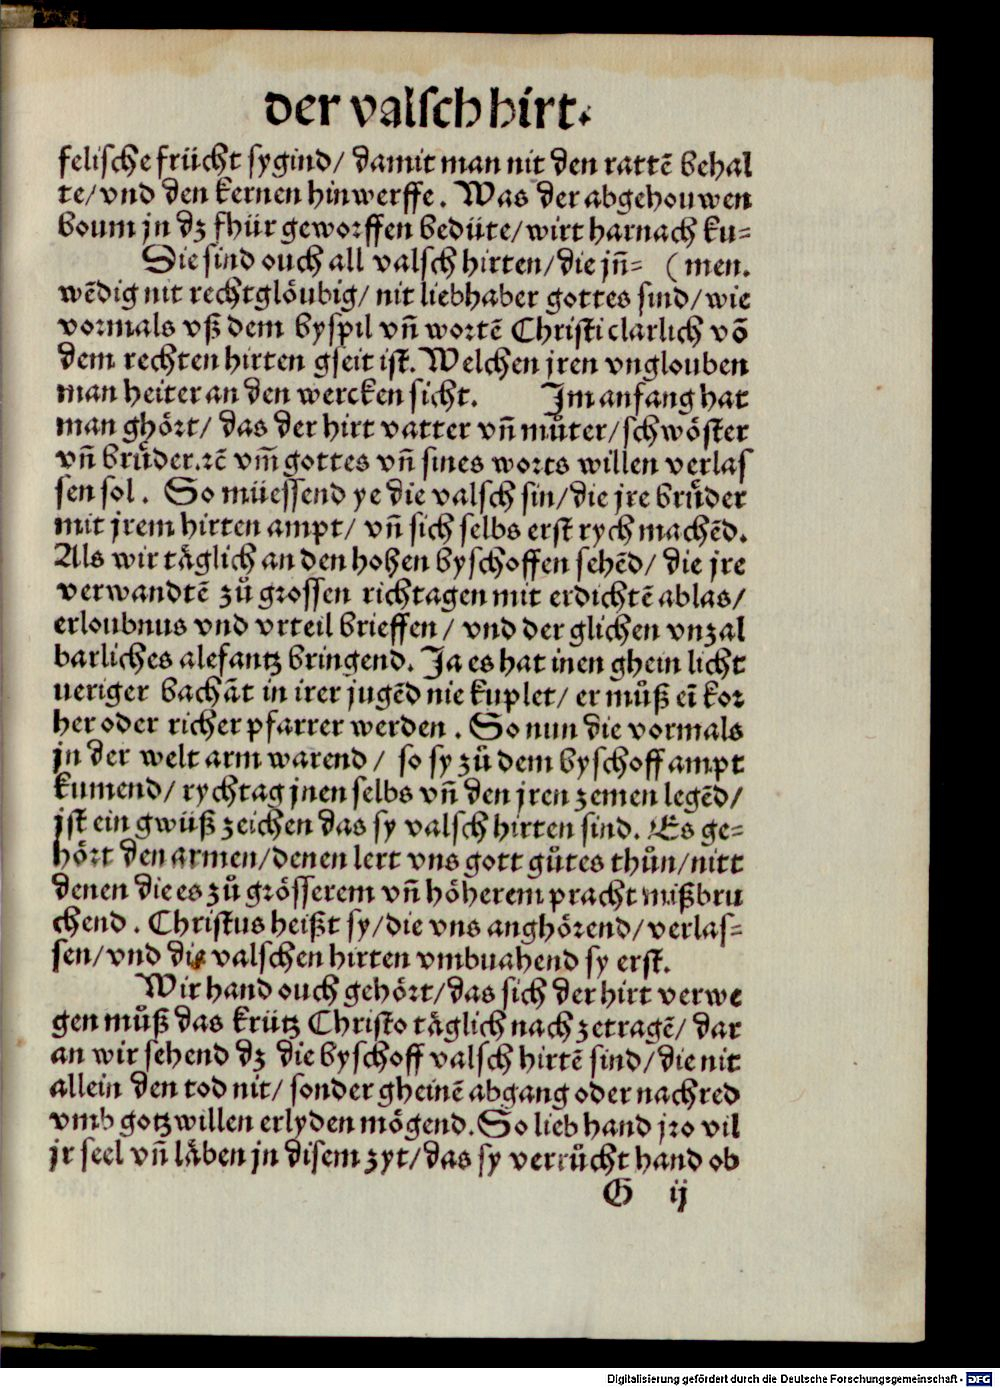 der valsch hirt.
felische frücht sygind/ damit man nit den rattē behal
te/vnd den kernen hinwerffe. Was der abgehouwen
boum jn dz fhür geworffen bedüte/wirt harnach ku=
Sie sind ouch all valsch hirten/die jn̄= (men.
wēdig nit rechtglöubig/ nit liebhaber gottes sind/wie
vormals vß dem byspil vn̄ wortē Christi clarlich vō
dem rechten hirten gseit ist. Welchen jren vnglouben
man heiter an den wercken sicht. Im anfang hat
man ghört/ das der hirt vatter vn̄ můter/schwöster
vn̄ brůder.ꝛē vm̄ gottes vn̄ sines worts willen verlas
sen sol. So müessend ye die valsch sin/die jre brůder
mit jrem hirten ampt/ vn̄ sich selbs erst rych machēd.
Als wir täglich an den hohen byschoffen sehēd/ die jre
verwandtē zů grossen richtagen mit erdichtē ablas/
erloubnus vnd vrteil brieffen/ vnd der glichen vnzal
barliches alefantz bringend. Ja es hat inen ghein licht
ueriger bachāt in irer jugēd nie kuplet/ er můß eī kor
her oder richer pfarrer werden. So nun die vormals
jn der welt arm warend/ so sy zů dem byschoff ampt
kumend/ rychtag jnen selbs vn̄ den jren zemen legēd/
jst ein gwüß zeichen das sy valsch hirten sind. Es ge=
hört den armen/denen lert vns gott gůtes thůn/nitt
denen die es zů grösserem vn̄ höherem pracht mißbru
chend. Christus heißt sy/die vns anghörend/verlas=
sen/vnd die valschen hirten vmbuahend sy erst.
Wir hand ouch gehört/das sich der hirt verwe
gen můß das krütz Christo täglich nach zetragē/ dar
an wir sehend dz die byschoff valsch hirtē sind/die nit
allein den tod nit/ sonder gheinē abgang oder nachred
vmb gotz willen erlyden mögend. So lieb hand jro vil
jr seel vn̄ läben jn disem zyt/das sy verrůcht hand ob
G ij
Digitalisierung gefördert durch die Deutsche Forschungsgemeinschaft - DFG